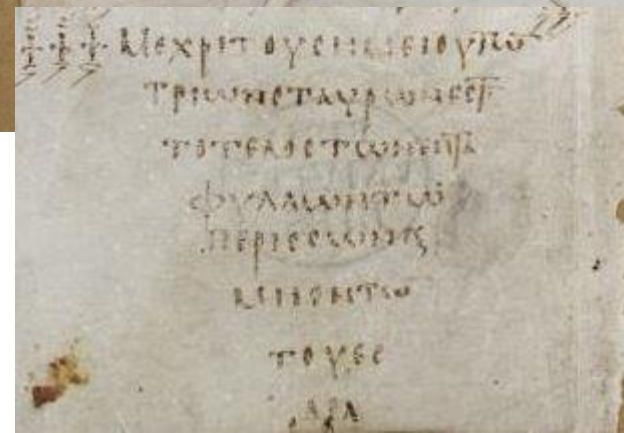 ΜΕΧΡΙΤΟΥϹΗΜΕΙΟΥΤΩ̅
ΤΡΙΩΝϹΤΑΥΡΩΝΕϹΤΙ̅
ΤΟΤΕΛΟϹΤΩΝΕΠΤΑ
ΦΥΛΛΩΝΤΩ̅
ΠΕΡΙϹϹΩΝϗ
ΜΗΟΝΤΩ̅
ΤΟΥΕϹ
ΔΡΑ